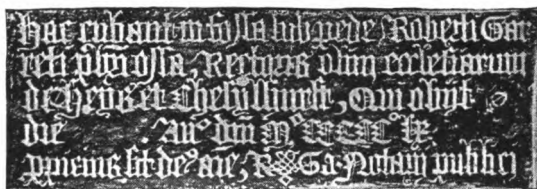 Hac cubant in fossa sub pede Roberti Ga
reti ossa, Rectoris olim ecclesiarum
de Heys et Chesylhurst, Qui obijt
die . Anº dni Mº CCCCº lx.
ppicius sit deº aie, R Ga Notarij publici